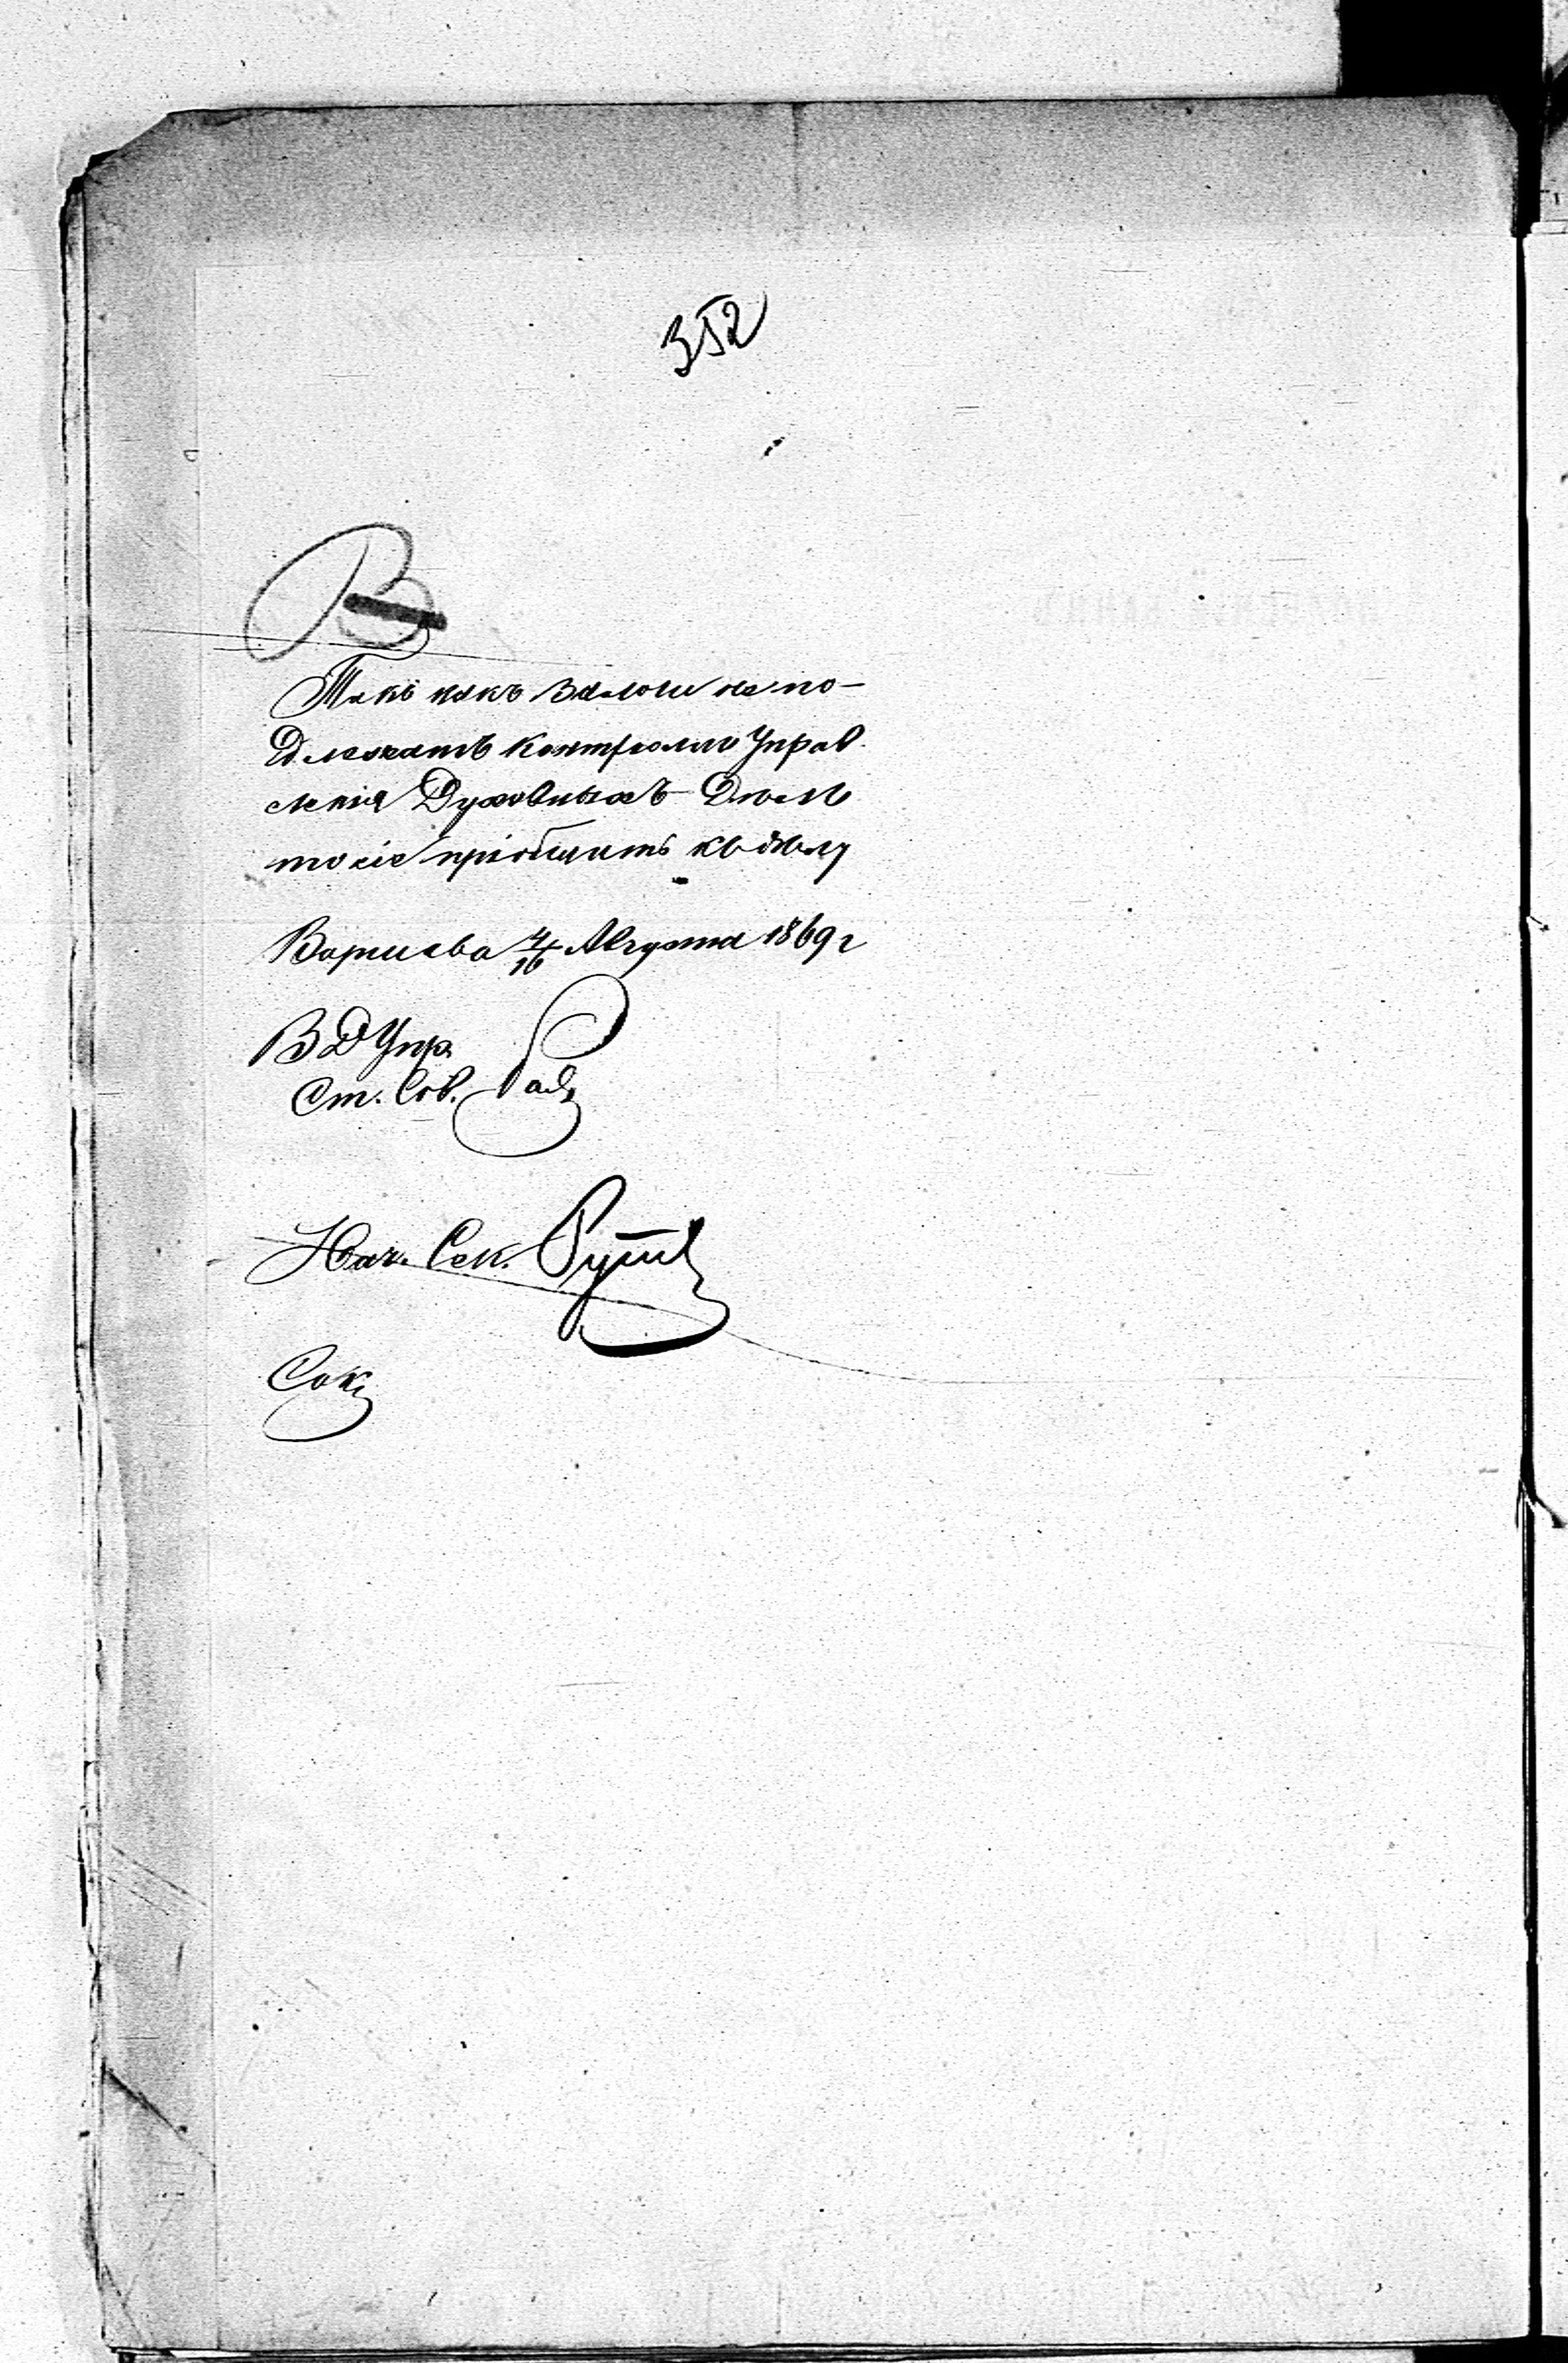 352
В
Такъ какъ залоги не по-
длежатъ контролю Управ
ленія Духовныхъ Дѣлъ
то сіе пріобщить къ дѣлу
Варшава 4/16 Августа 1869 г
ВД Упр.
Ст. Сов.
Нач. Сек.